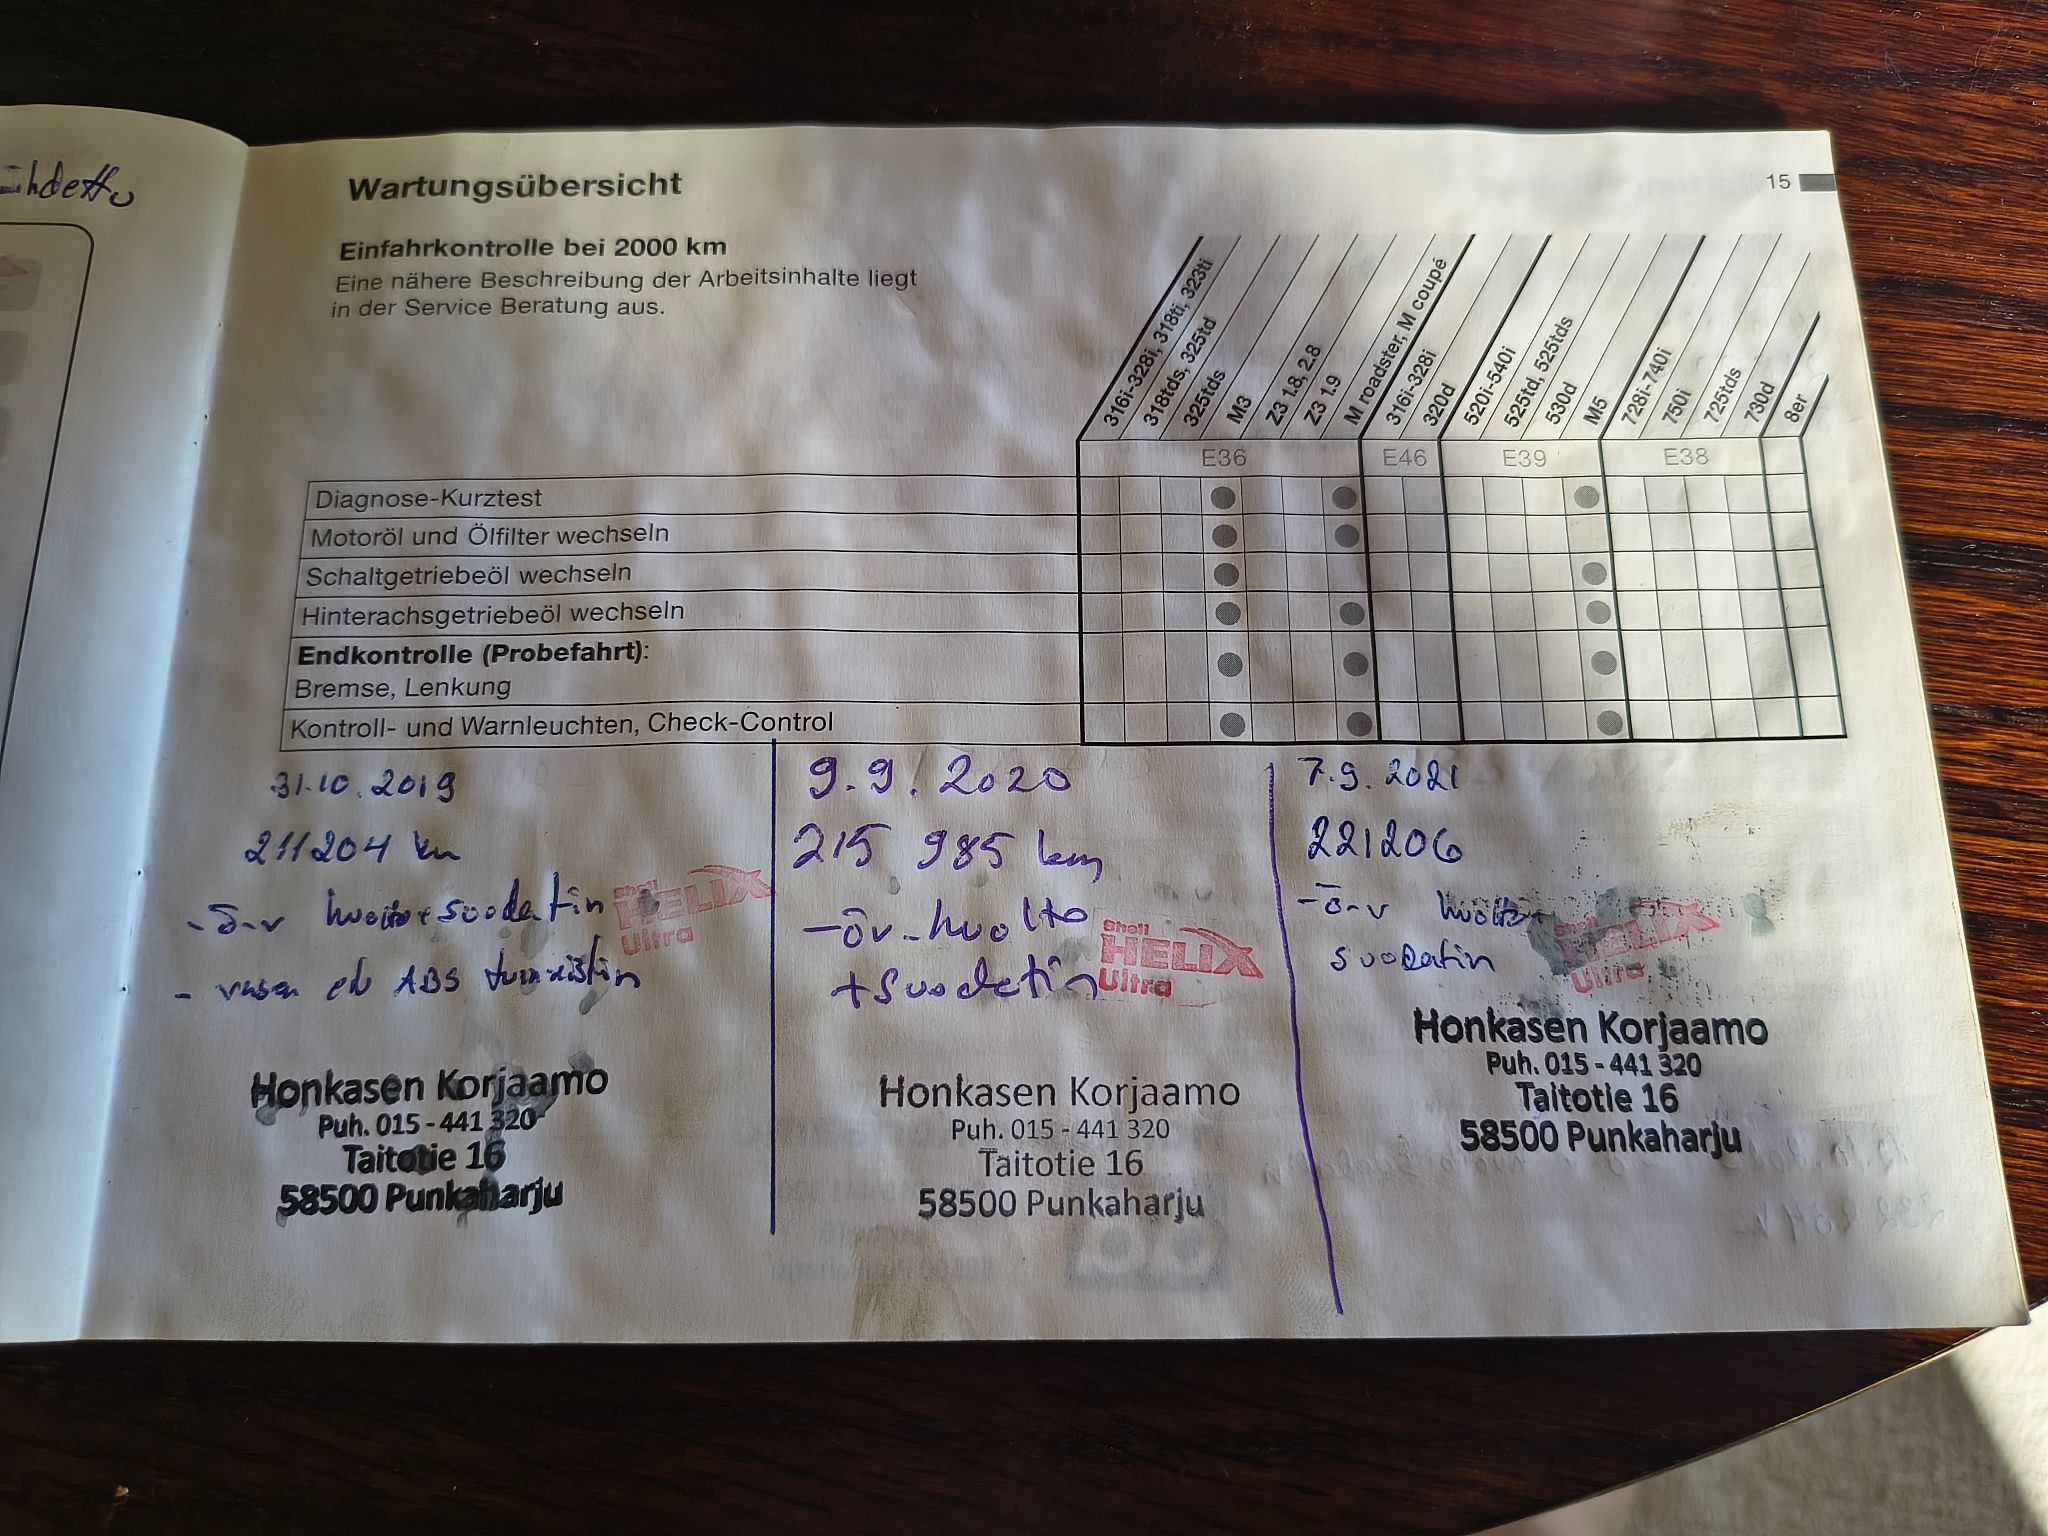 Wartungsübersicht
15
Einfahrkontrolle bei 2000 km
Eine nähere Beschreibung der Arbeitsinhalte liegt
in der Service Beratung aus.
316i-328i, 318ti, 323ti
318tds, 325td
325tds
M3
Z3 1.8, 2.8
Z3 1.9
M roadster, M coupé
316i-328i
320d
520i-540i
525td, 525tds
530d
M5
728i-740i
750i
725tds
730d
8er
E36 E46 E39 E38
Diagnose-Kurztest
Motoröl und Ölfilter wechseln
Schaltgetriebeöl wechseln
Hinterachsgetriebeöl wechseln
Endkontrolle (Probefahrt):
Bremse, Lenkung
Kontroll- und Warnleuchten, Check-Control
31.10.2019
211204 km
-ö-v huolto+suodatin
- vasen etu ABS tunnistin
Shell
HELIX
Ultra
Honkasen Korjaamo
Puh. 015 - 441 320
Taitotie 16
58500 Punkaharju
9.9.2020
215 985 km
-öv-huolto
+suodatin
Shell
HELIX
Ultra
Honkasen Korjaamo
Puh. 015 - 441 320
Taitotie 16
58500 Punkaharju
7.9.2021
221206
-ö-v huolto+
suodatin
Shell
HELIX
Ultra
Honkasen Korjaamo
Puh. 015 - 441 320
Taitotie 16
58500 Punkaharju